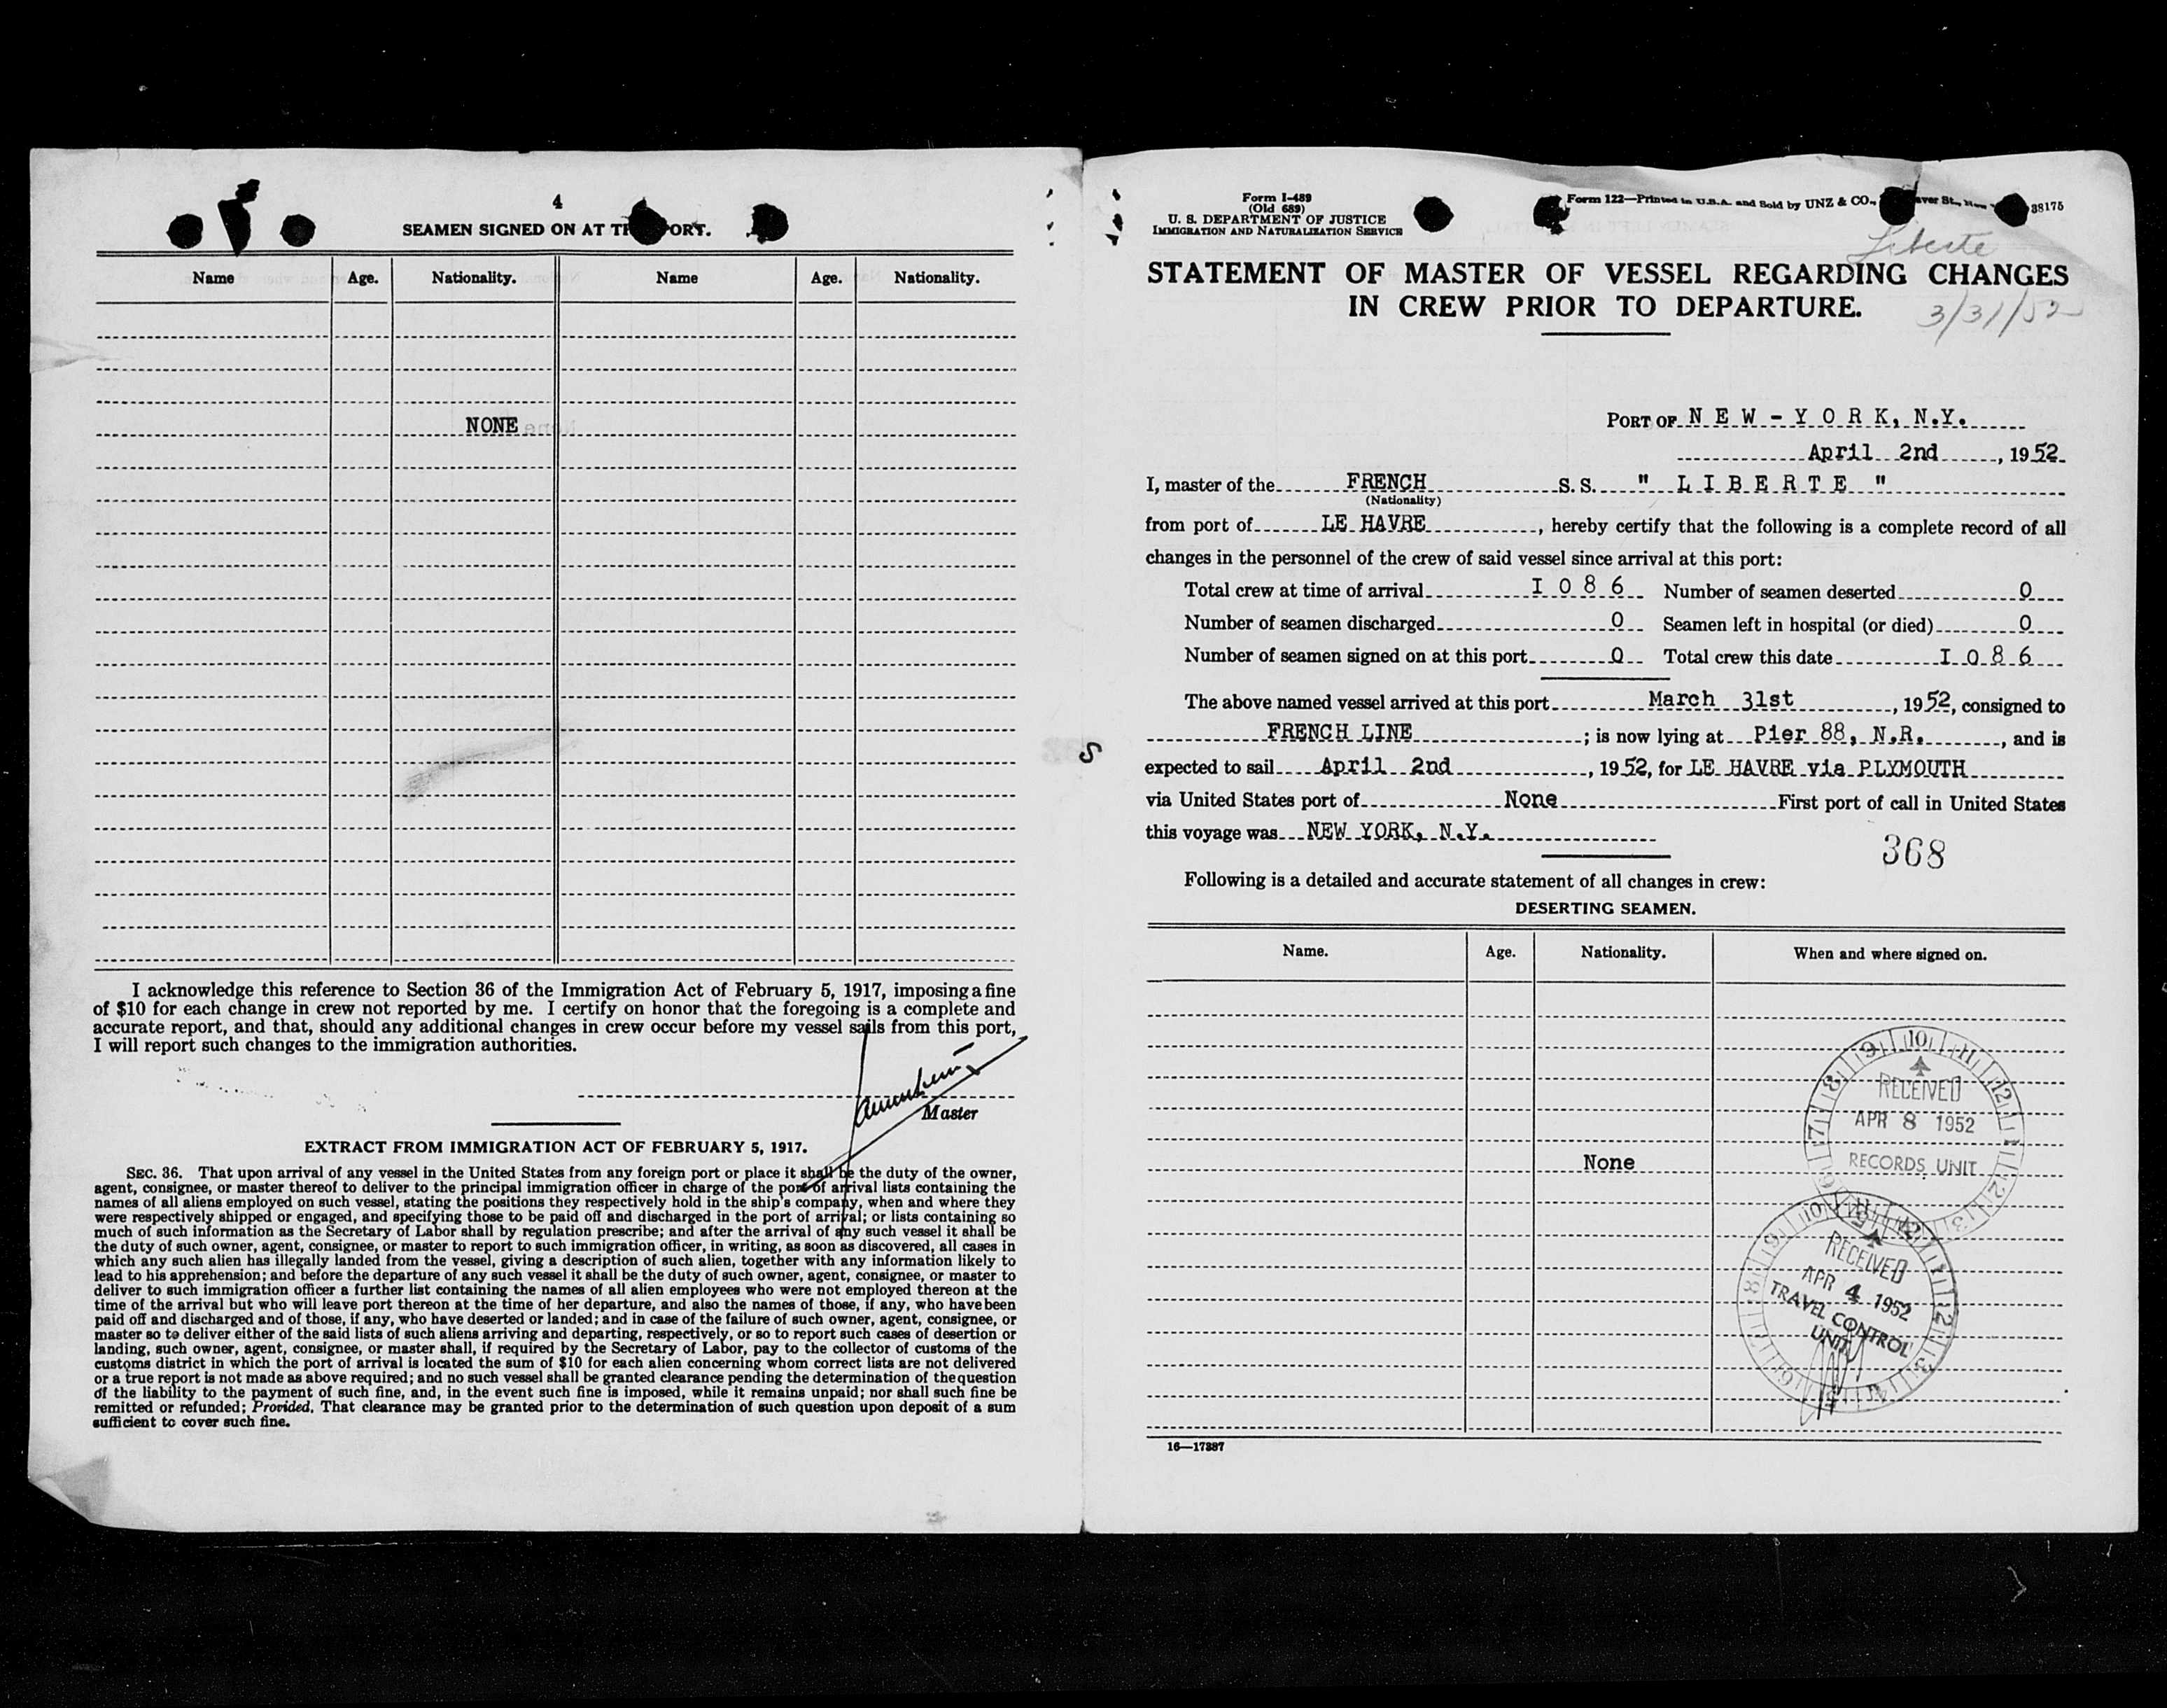 4
SEAMEN SIGNED ON AT ORT.
Name Age. Nationality. Name Age. Nationality.
NONE
I acknowledge this reference to Section 36 of the Immigration Act of February 5, 1917, imposing a fine
of $10 for each change in crew not reported by me. I certify on honor that the foregoing is a complete and
accurate report, and that, should any additional changes in crew occur before my vessel sails from this port,
I will report such changes to the immigration authorities.
Master
EXTRACT FROM IMMIGRATION ACT OF FEBRUARY 5, 1917.
SEC. 36. That upon arrival of any vessel in the United States from any foreign port or place it shall be the duty of the owner,
agent, consignee, or master thereof to deliver to the principal immigration officer in charge of the port of arrival lists containing the
names of all aliens employed on such vessel, stating the positions they respectively hold in the ship's company, when and where they
were respectively shipped or engaged, and specifying those to be paid off and discharged in the port of arrival; or lists containing so
much of such information as the Secretary of Labor shall by regulation prescribe; and after the arrival of any such vessel it shall be
the duty of such owner, agent, consignee, or master to report to such immigration officer, in writing, as soon as discovered, all cases in
which any such alien has illegally landed from the vessel, giving a description of such alien, together with any information likely to
lead to his apprehension; and before the departure of any such vessel it shall be the duty of such owner, agent, consignee, or master to
deliver to such immigration officer a further list containing the names of all alien employees who were not employed thereon at the
time of the arrival but who will leave port thereon at the time of her departure, and also the names of those, if any, who have been
paid off and discharged and of those, if any, who have deserted or landed; and in case of the failure of such owner, agent, consignee, or
master so to deliver either of the said lists of such aliens arriving and departing, respectively, or so to report such cases of desertion or
landing, such owner, agent, consignee, or master shall, if required by the Secretary of Labor, pay to the collector of customs of the
customs district in which the port of arrival is located the sum of $10 for each alien concerning whom correct lists are not delivered
or a true report is not made as above required; and no such vessel shall be granted clearance pending the determination of the question
of the liability to the payment of such fine, and, in the event such fine is imposed, while it remains unpaid; nor shall such fine be
remitted or refunded; Provided, That clearance may be granted prior to the determination of such question upon deposit of a sum
sufficient to cover such fine.
Form I-489
(Old 689)
U. S. DEPARTMENT OF JUSTICE
IMMIGRATION AND NATURALIZATION SERVICE
Form 122—Printed in U.S.A. and Sold by UNZ & CO., aver St., 38175
Liberte
STATEMENT OF MASTER OF VESSEL REGARDING CHANGES
IN CREW PRIOR TO DEPARTURE.
3/31/52
PORT OF NEW-YORK, N.Y.
April 2nd, 1952.
I, master of the FRENCH S.S. " LIBERTE "
(Nationality)
from port of LE HAVRE, hereby certify that the following is a complete record of all
changes in the personnel of the crew of said vessel since arrival at this port:
Total crew at time of arrival I086 Number of seamen deserted 0
Number of seamen discharged 0 Seamen left in hospital (or died) 0
Number of seamen signed on at this port 0 Total crew this date I086
The above named vessel arrived at this port March 31st, 1952, consigned to
FRENCH LINE; is now lying at Pier 88, N.R., and is
expected to sail April 2nd, 1952, for LE HAVRE via PLYMOUTH
via United States port of None First port of call in United States
this voyage was NEW YORK, N.Y.
368
Following is a detailed and accurate statement of all changes in crew:
DESERTING SEAMEN.
Name. Age. Nationality. When and where signed on.
None
9 10 11 12 1 2 3 7 8
RECEIVED
APR 8 1952
RECORDS UNIT
RECEIVED
APR 4 1952
TRAVEL CONTROL
UNIT
16—17387